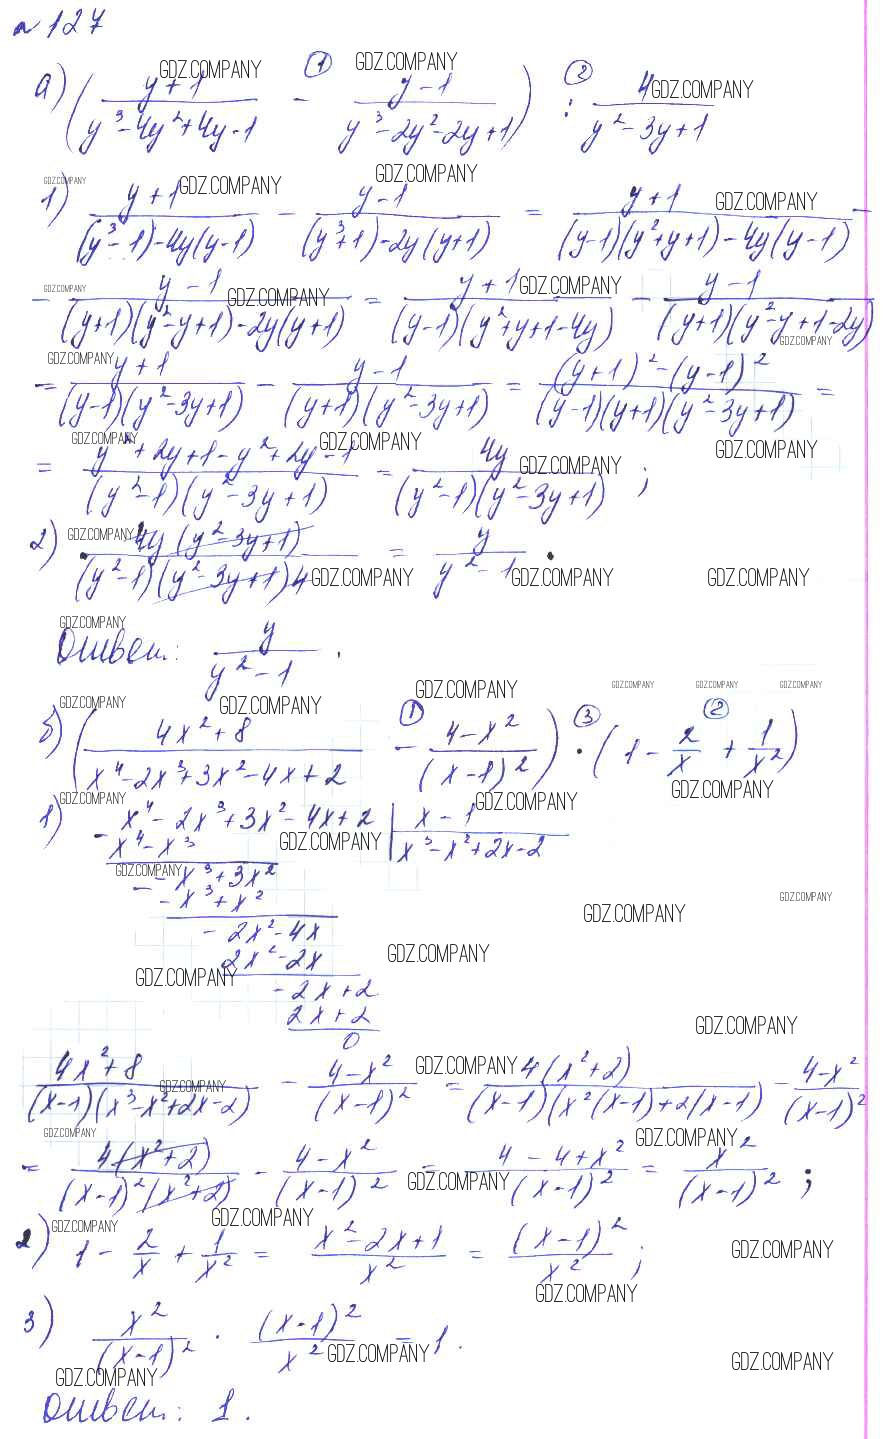 №127
а) ( (y+1)/(y³-4y²+4y-1) - (y-1)/(y³-2y²-2y+1) ) : 4/(y²-3y+1)
① ②
1) (y+1)/((y³-1)-4y(y-1)) - (y-1)/((y³+1)-2y(y+1)) = (y+1)/((y-1)(y²+y+1)-4y(y-1)) -
- (y-1)/((y+1)(y²-y+1)-2y(y+1)) = (y+1)/((y-1)(y²+y+1-4y)) - (y-1)/((y+1)(y²-y+1-2y))
= (y+1)/((y-1)(y²-3y+1)) - (y-1)/((y+1)(y²-3y+1)) = ((y+1)²-(y-1)²)/((y-1)(y+1)(y²-3y+1)) =
= (y²+2y+1-y²+2y-1)/((y²-1)(y²-3y+1)) = 4y/((y²-1)(y²-3y+1)) ;
2) 4y(y²-3y+1)/((y²-1)(y²-3y+1)4) = y/(y²-1) .
Ответ: y/(y²-1) .
б) ( (4x²+8)/(x⁴-2x³+3x²-4x+2) - (4-x²)/((x-1)²) ) · (1 - 2/x + 1/x²)
① ③ ②
1) - x⁴-2x³+3x²-4x+2 | x-1
x⁴-x³ | x³-x²+2x-2
- -x³+3x²
-x³+x²
- 2x²-4x
2x²-2x
-2x+2
2x+2
0
(4x²+8)/((x-1)(x³-x²+2x-2)) - (4-x²)/((x-1)²) = 4(x²+2)/((x-1)(x²(x-1)+2(x-1)) - (4-x²)/((x-1)²)
= 4(x²+2)/((x-1)²(x²+2)) - (4-x²)/((x-1)²) = (4-4+x²)/((x-1)²) = x²/((x-1)²) ;
2) 1 - 2/x + 1/x² = (x²-2x+1)/x² = (x-1)²/x² ;
3) x²/((x-1)²) · (x-1)²/x² = 1 .
Ответ: 1 .
GDZ.COMPANY